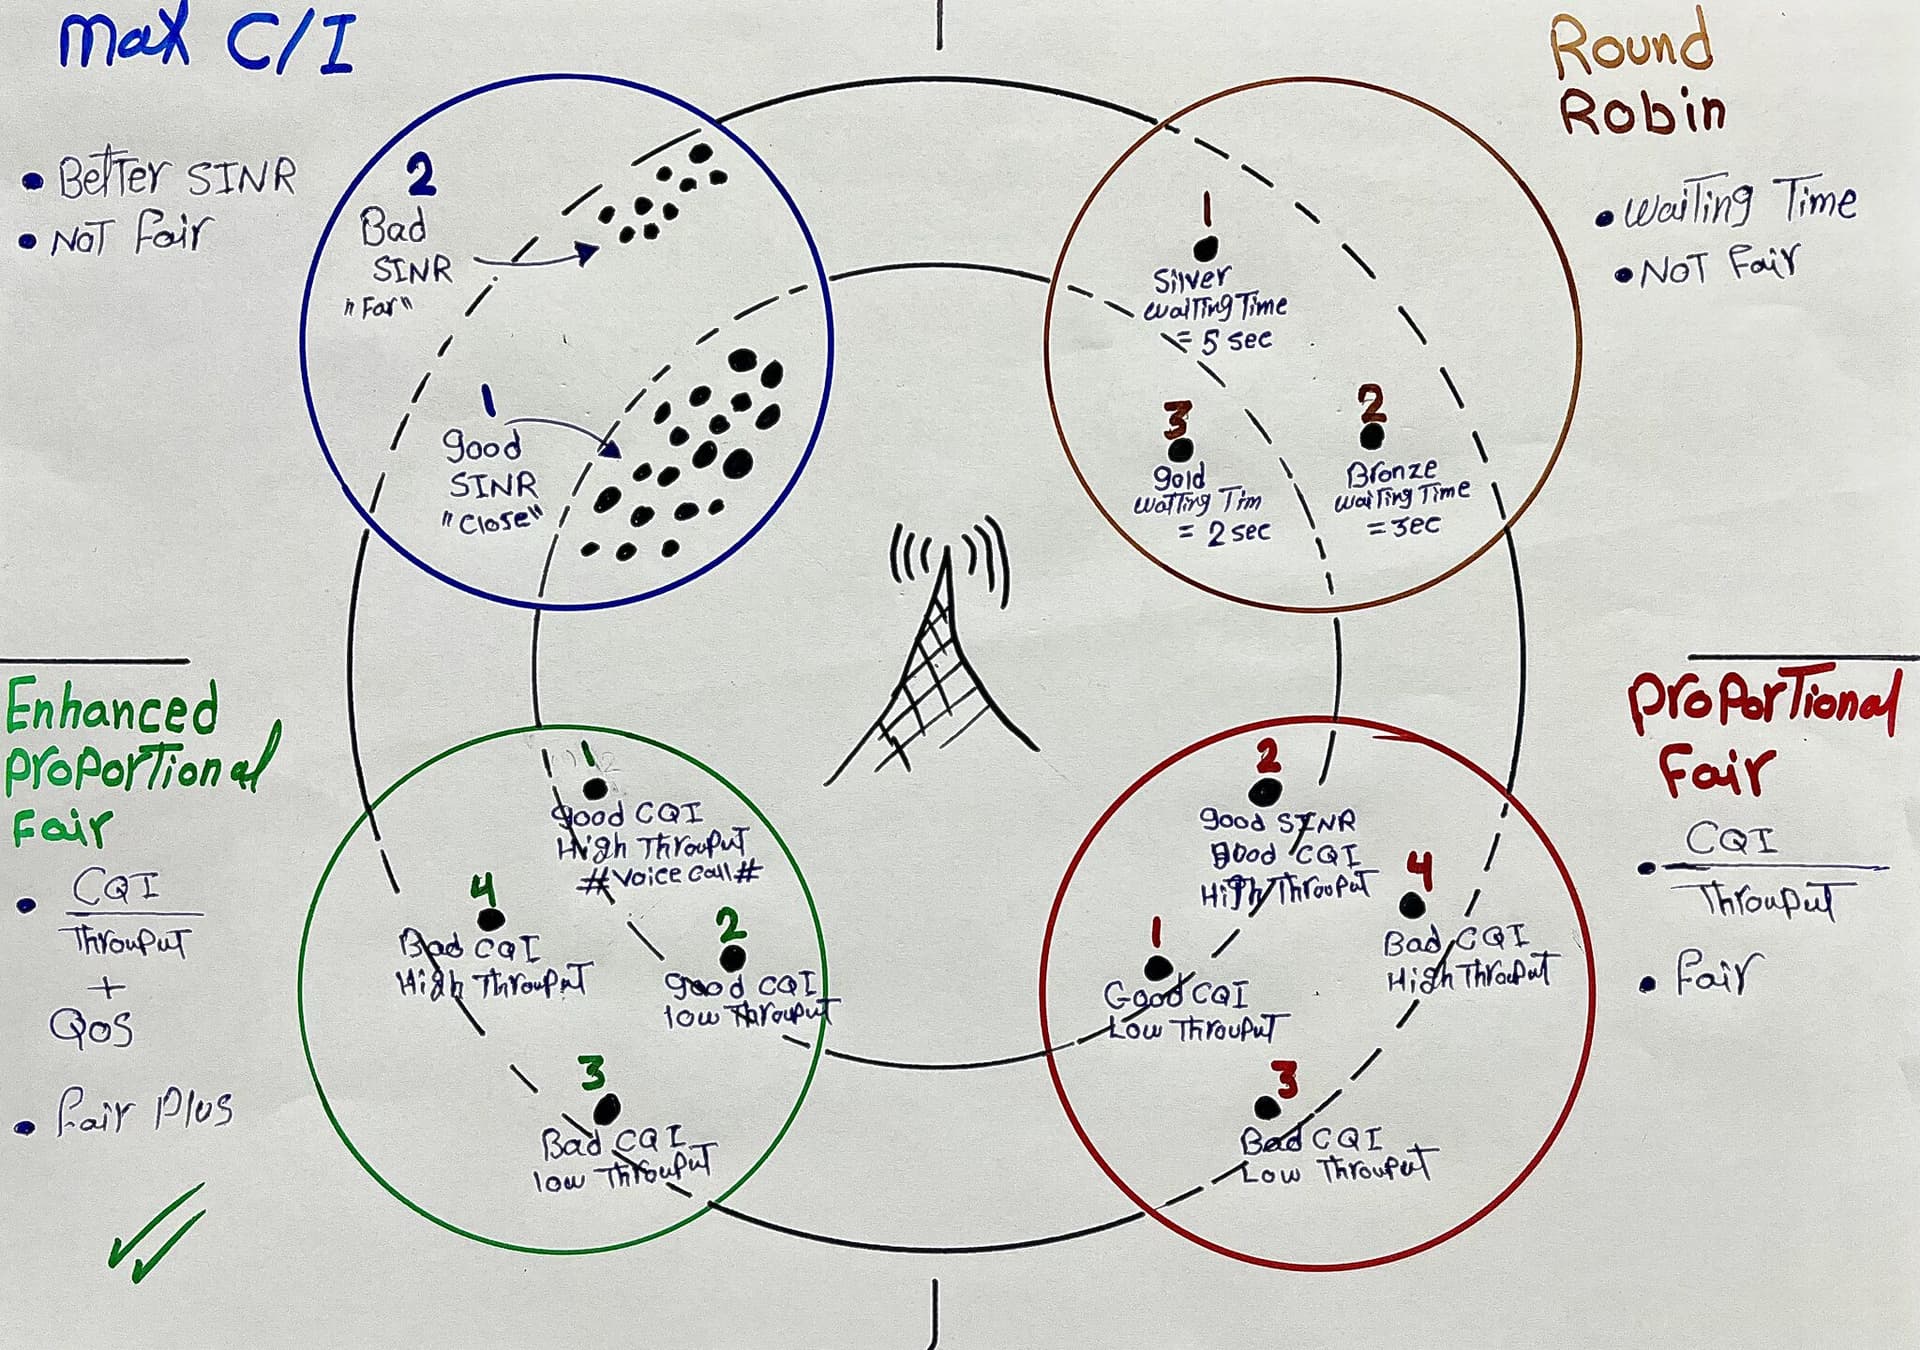 max C/I
• Better SINR
• NOT Fair
2
Bad
SINR
"Far"
1
good
SINR
"Close"
Round
Robin
• Waiting Time
• NOT Fair
1
Silver
Waiting Time
= 5 sec
3
gold
Waiting Tim
= 2 sec
2
Bronze
Waiting Time
= 3ec
Enhanced
Proportional
Fair
• CQI
Throuput
+
QoS
• Fair Plus
1
good CQI
High Throuput
#Voice call#
4
Bad CQI
High Throuput
2
good CQI
low Throuput
3
Bad CQI
low Throuput
Proportional
Fair
• CQI
Throuput
• Fair
2
good SINR
good CQI
High Throuput
4
Bad CQI
High Throuput
1
Good CQI
Low Throuput
3
Bad CQI
Low Throuput